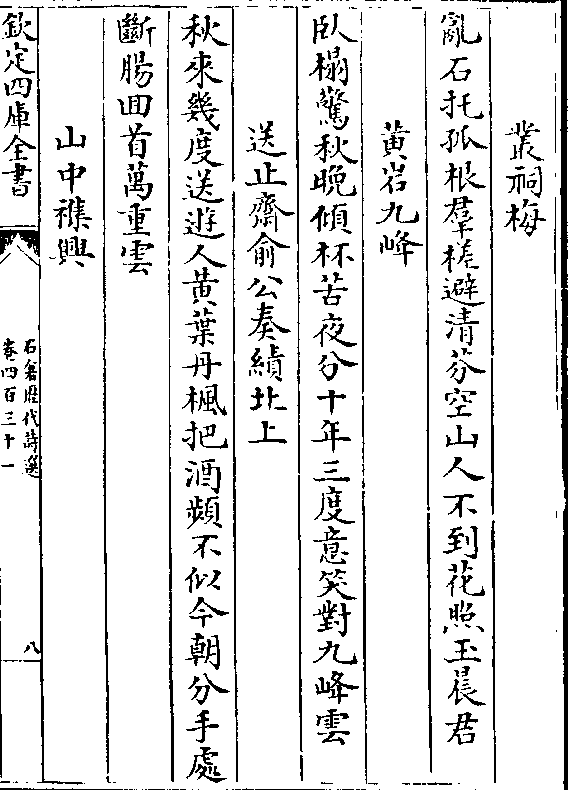 叢祠梅
亂石托孤根羣槎避清芬空山人不到花照玉晨君
黄岩九峰
臥榻驚秋晚傾杯苦夜分十年三度意笑對九峰雲
送止齋俞公奏績北上
秋來幾度送逰人黄葉丹楓把酒頻不似今朝分手處
斷腸囬首萬重雲
山中襍興
欽定四庫全書
石倉歴代詩選
卷四百三十一
八